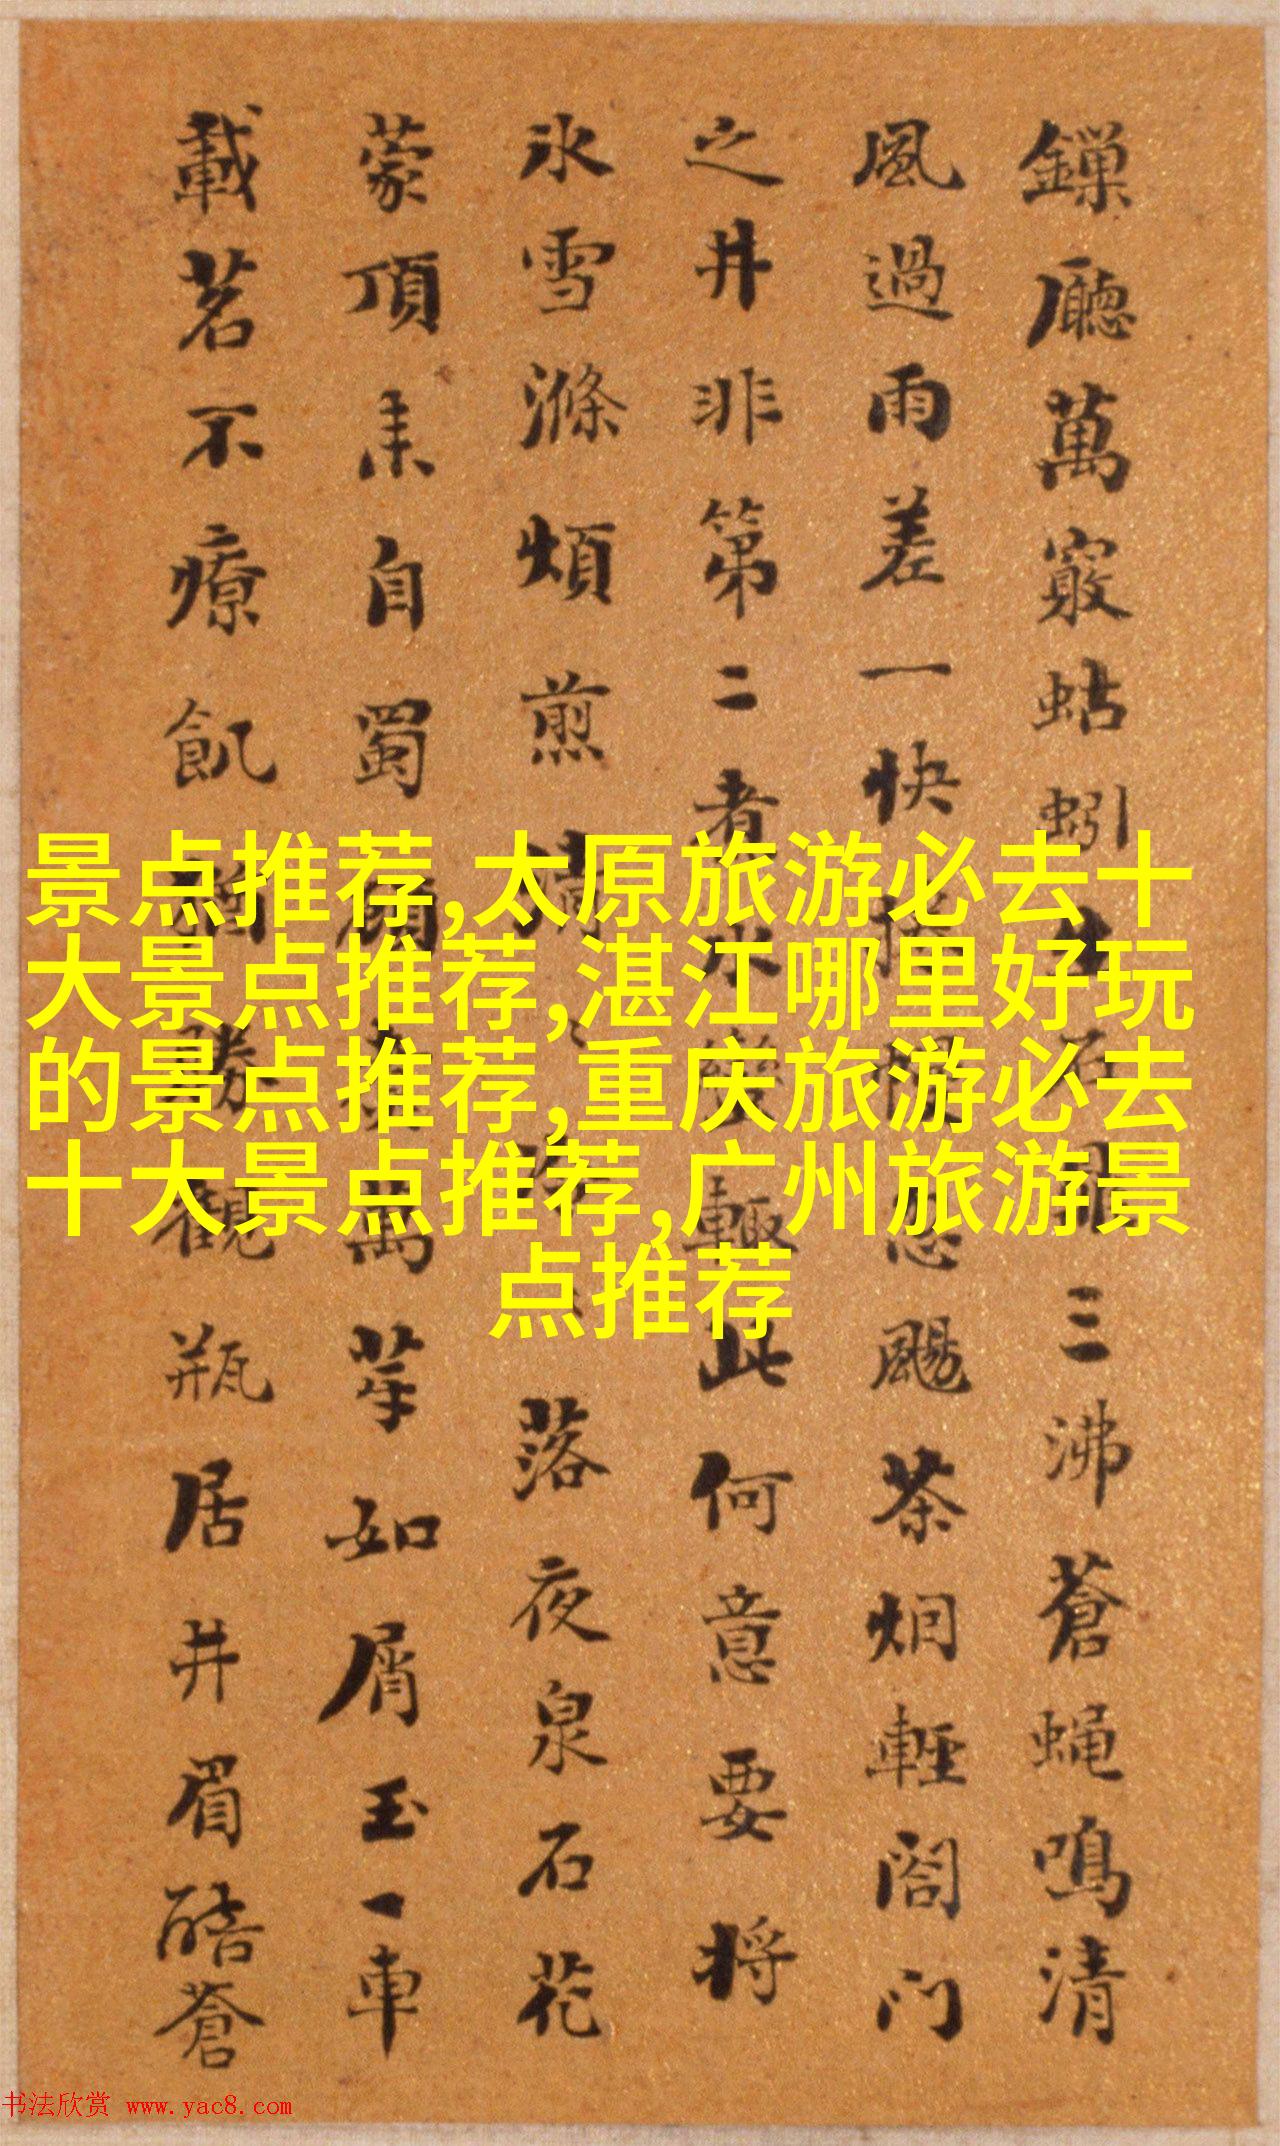 廳萬蛄蚓三沸蒼蝇鳴清
風過雨差一快颺茶烟輕閤門
之井非第二者水輙此何意要将
氷雪滌煩煎落夜泉石花
蒙頂来自蜀萬芽如屑玉一車
載茗不療飢觀瓶居井眉酷蒼
景点推荐,太原旅游必去十
大景点推荐,湛江哪里好玩
的景点推荐,重庆旅游必去
十大景点推荐,广州旅游景
点推荐
书法欣赏 www.yac8.com